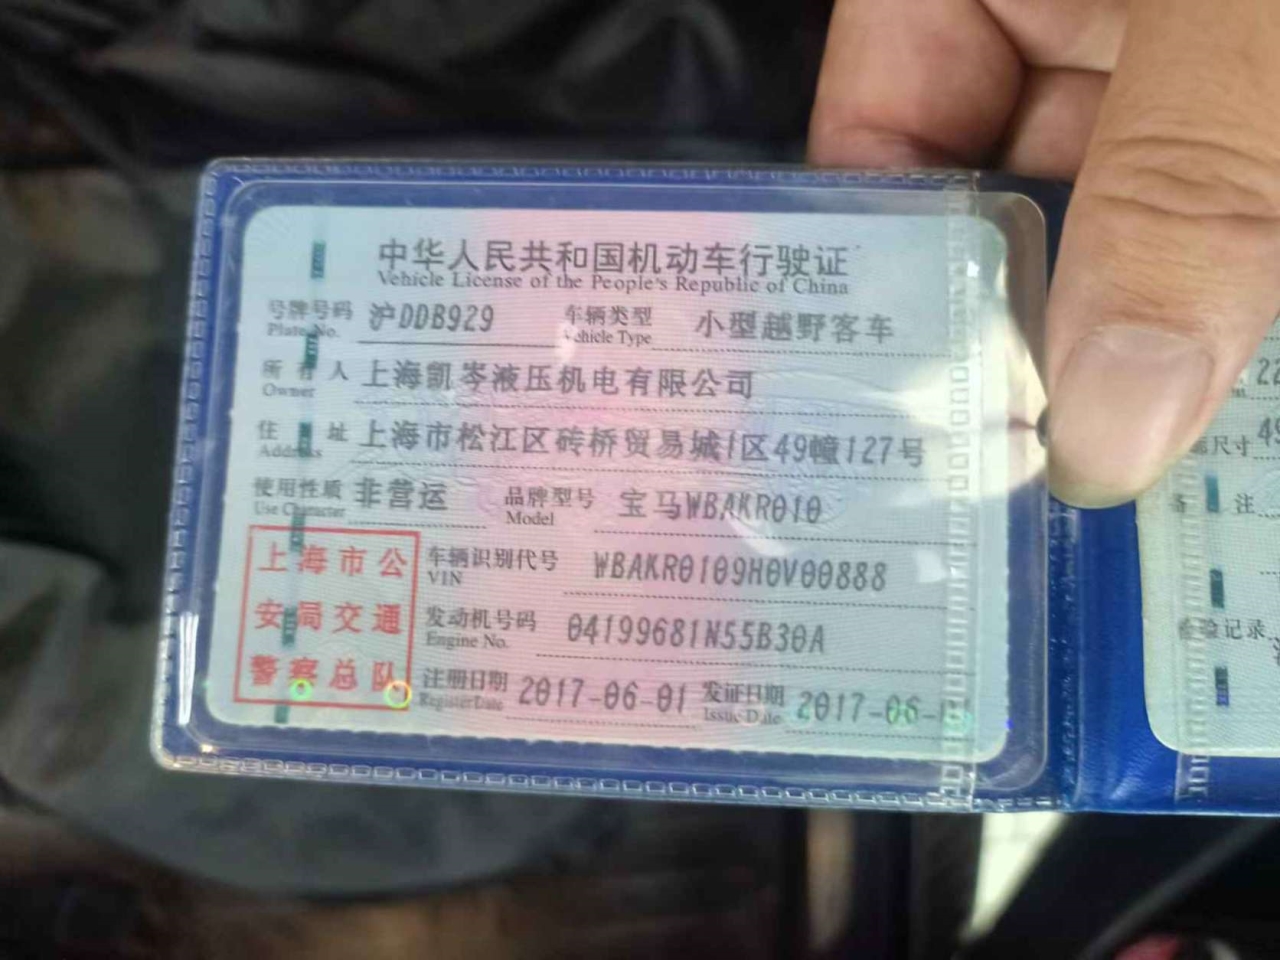 中华人民共和国机动车行驶证
Vehicle License of the People's Republic of China
号牌号码 沪DDB929 车辆类型 小型越野客车
Plate No. Vehicle Type
所有人 上海凯岑液压机电有限公司
Owner
住址 上海市松江区砖桥贸易城1区49幢127号
Address
使用性质 非营运 品牌型号 宝马WBAKR010
Use Character Model
上海市公
安局交通
警察总队
车辆识别代号 WBAKR0109H0V00888
VIN
发动机号码 04199681N55B30A
Engine No.
注册日期 2017-06-01 发证日期 2017-06-
Register Date Issue Date
22
尺寸 48
备注
检验记录